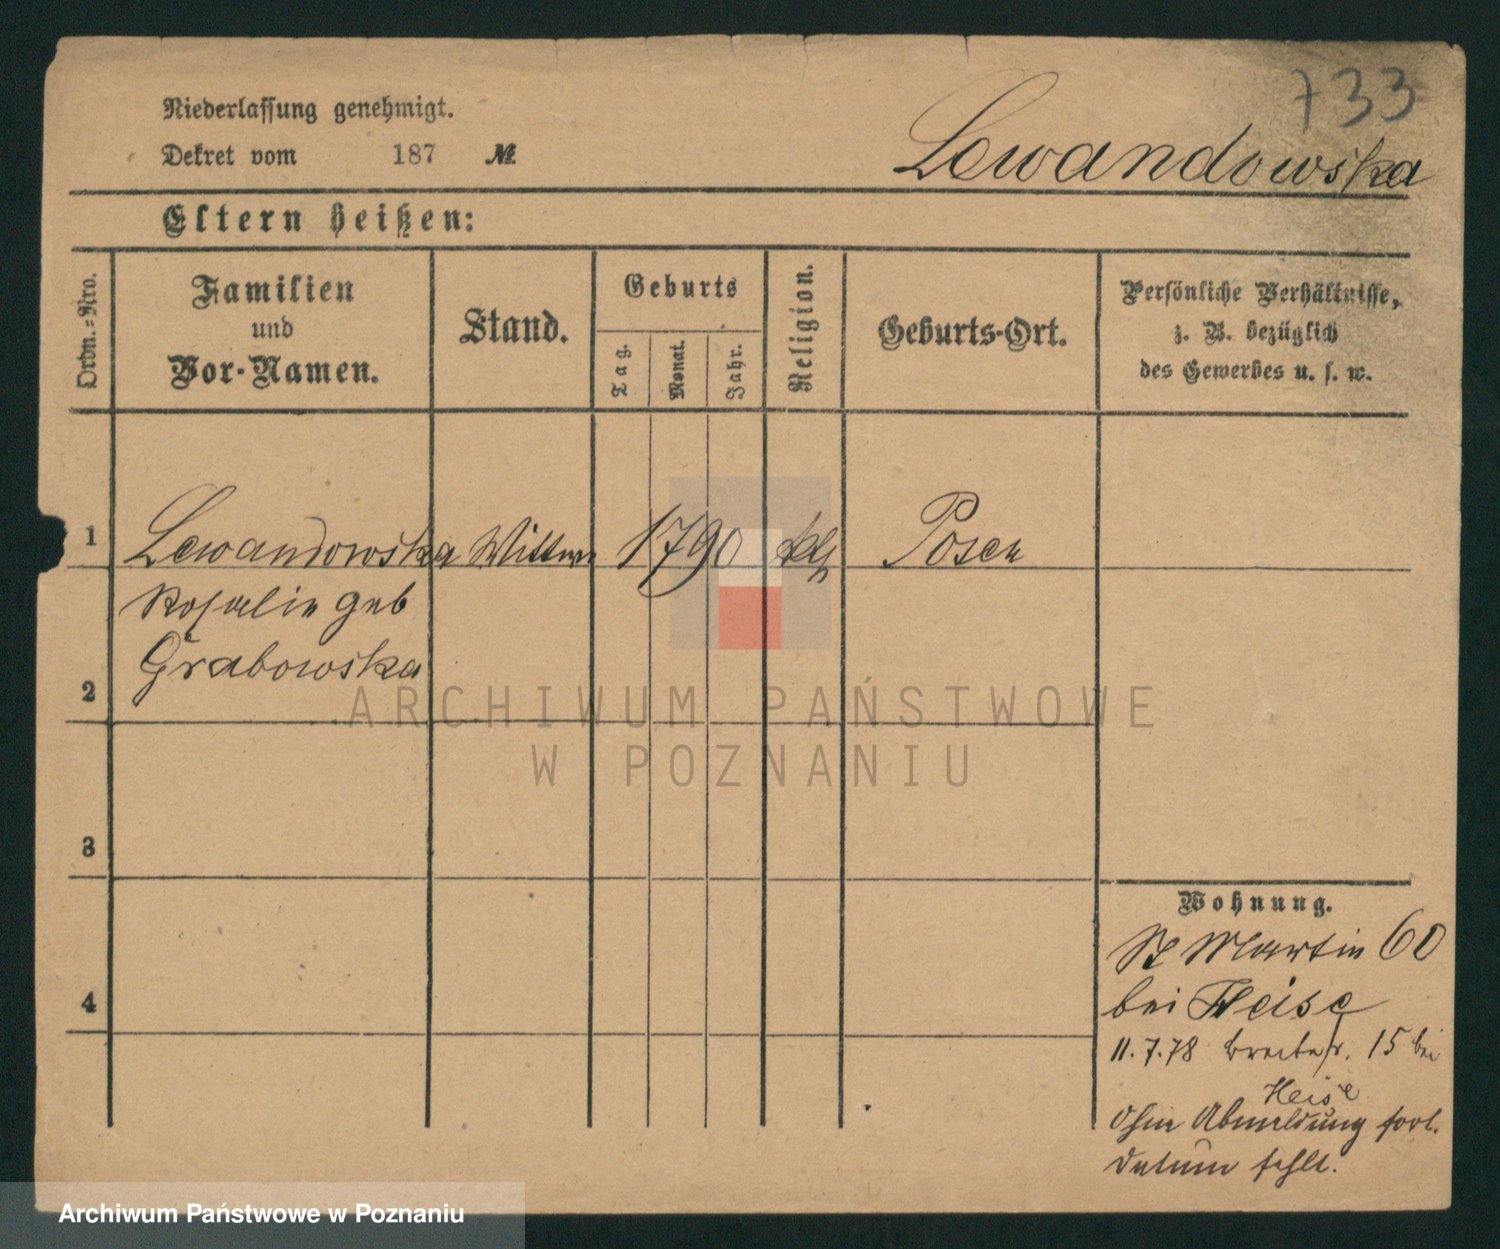 733
Niederlassung genehmigt.
Dekret vom 187 №
Lewandowska
Eltern heißen:
Ordn.=Nro.
Familien
und
Vor-Namen.
Stand.
Geburts
Tag.
Monat.
Jahr.
Religion.
Geburts-Ort.
Persönliche Verhältnisse,
z. B. bezüglich
des Gewerbes u. s. w.
1 Lewandowska Wittwe 1790 kth Posen
Rosalie geb
Grabowska
2
ARCHIWUM PAŃSTWOWE
W POZNANIU
3
4
Wohnung.
St Martin 60
bei Heise
11.7.78 Breitestr. 15 bei
Heise
Ohne Abmeldung fort.
Datum fehlt.
Archiwum Państwowe w Poznaniu